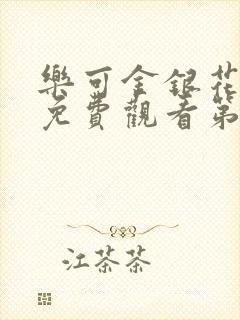 樂可金銀花
免費觀看第
江茶茶